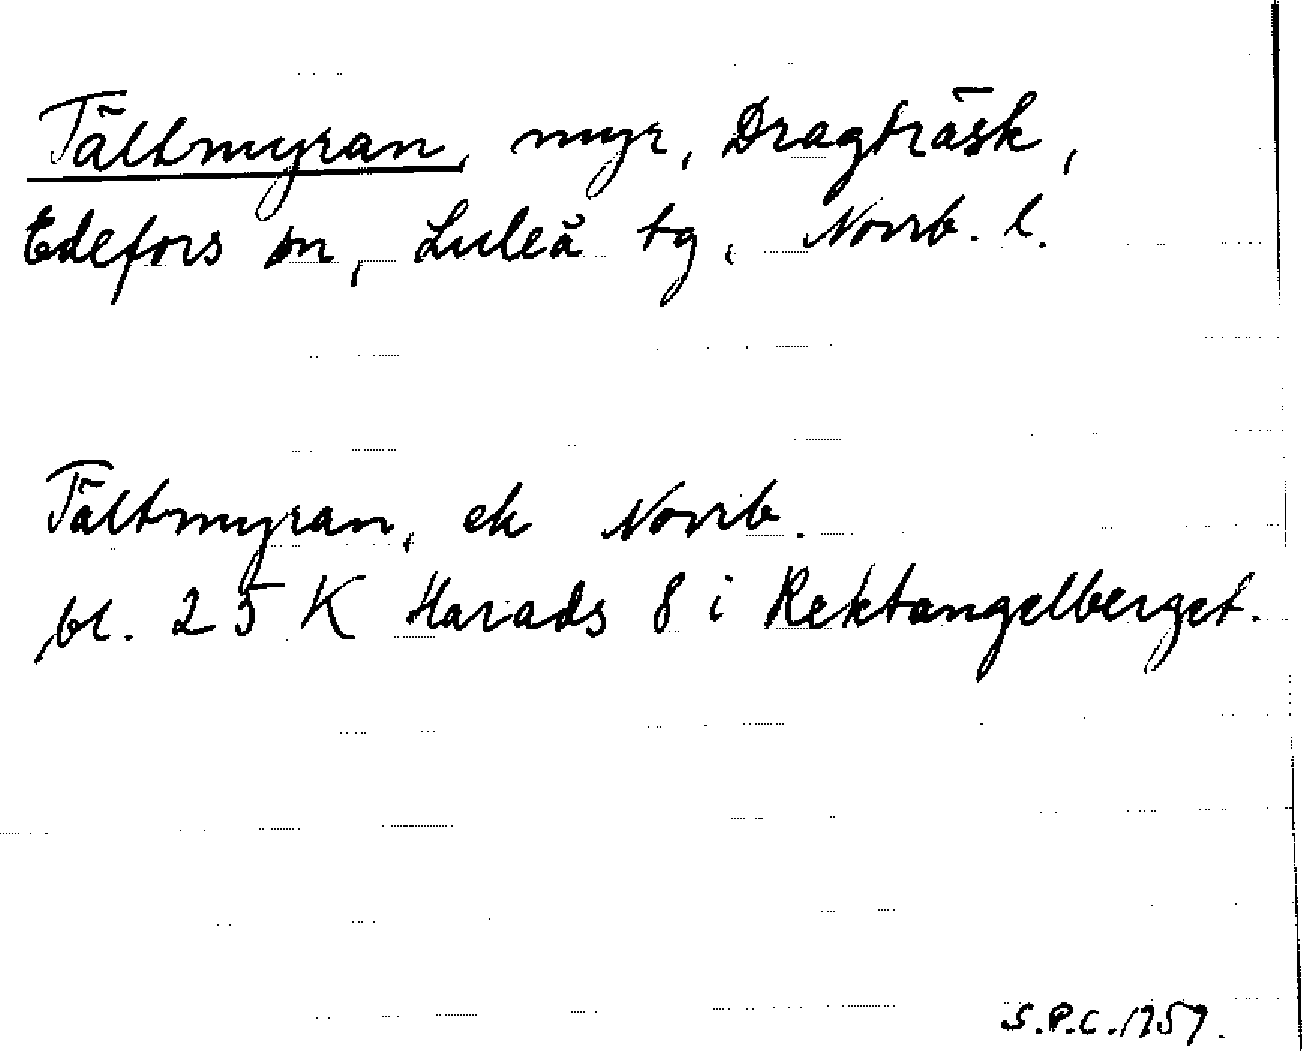 Tältmyran, myr, Dragträsk,
Edefors sn, Luleå tg, Norrb. l.
Tältmyran, ek Norrb.
bl. 25 K Harads 8 i Rektangelberget.
S.P.C. 1959.